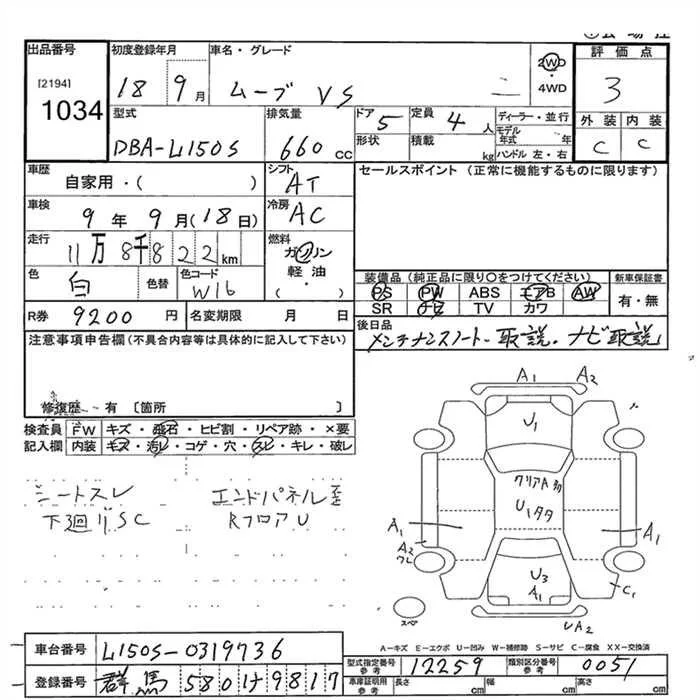 出品番号 初度登録年月 車名・グレード 2WD・4WD 評価点
[2194] 1034 18 9月 ムーブ VS 3
型式 排気量 ドア 5 定員 4人 ディーラー・並行 外装 内装
DBA-L150S 660cc 形状 積載 kg モデル年式 年 ハンドル 左・右 C C
車歴 シフト AT セールスポイント (正常に機能するものに限ります)
自家用・( )
車検 9年9月(18日) 冷房 AC
走行 11万8千822km 燃料 ガソリン 軽油・( )
色 白 色替 色コード W16
装備品 (純正品に限り○をつけてください) 新車保証書
PS PW ABS エアB AW 有・無
SR ナビ TV カワ
R券 9200円 名変期限 月 日 後日品
メンテナンスノート・取説・ナビ取説
注意事項申告欄(不具合内容等は具体的に記入して下さい)
修復歴 有 〔箇所 〕
検査員 FW キズ・飛石・ヒビ割・リペア跡・×要
記入欄 内装 キズ・汚レ・コゲ・穴・スレ・キレ・破レ
シートスレ エンドパネル歪
下廻りSC RフロアU
A1 A2
U1
クリアA多
U1タタ
A1 A1
A2
ワレ
U3
A1 C1
スペ UA2
A-キズ E-エクボ U-凹み W-補修跡 S-サビ C-腐食 XX-交換済
車台番号 L150S-0319736
型式指定番号 参考 12259 類別区分番号 参考 0051
登録番号 群馬 580 け 9817
車庫証明用 参考 長さ cm 幅 cm 高さ cm